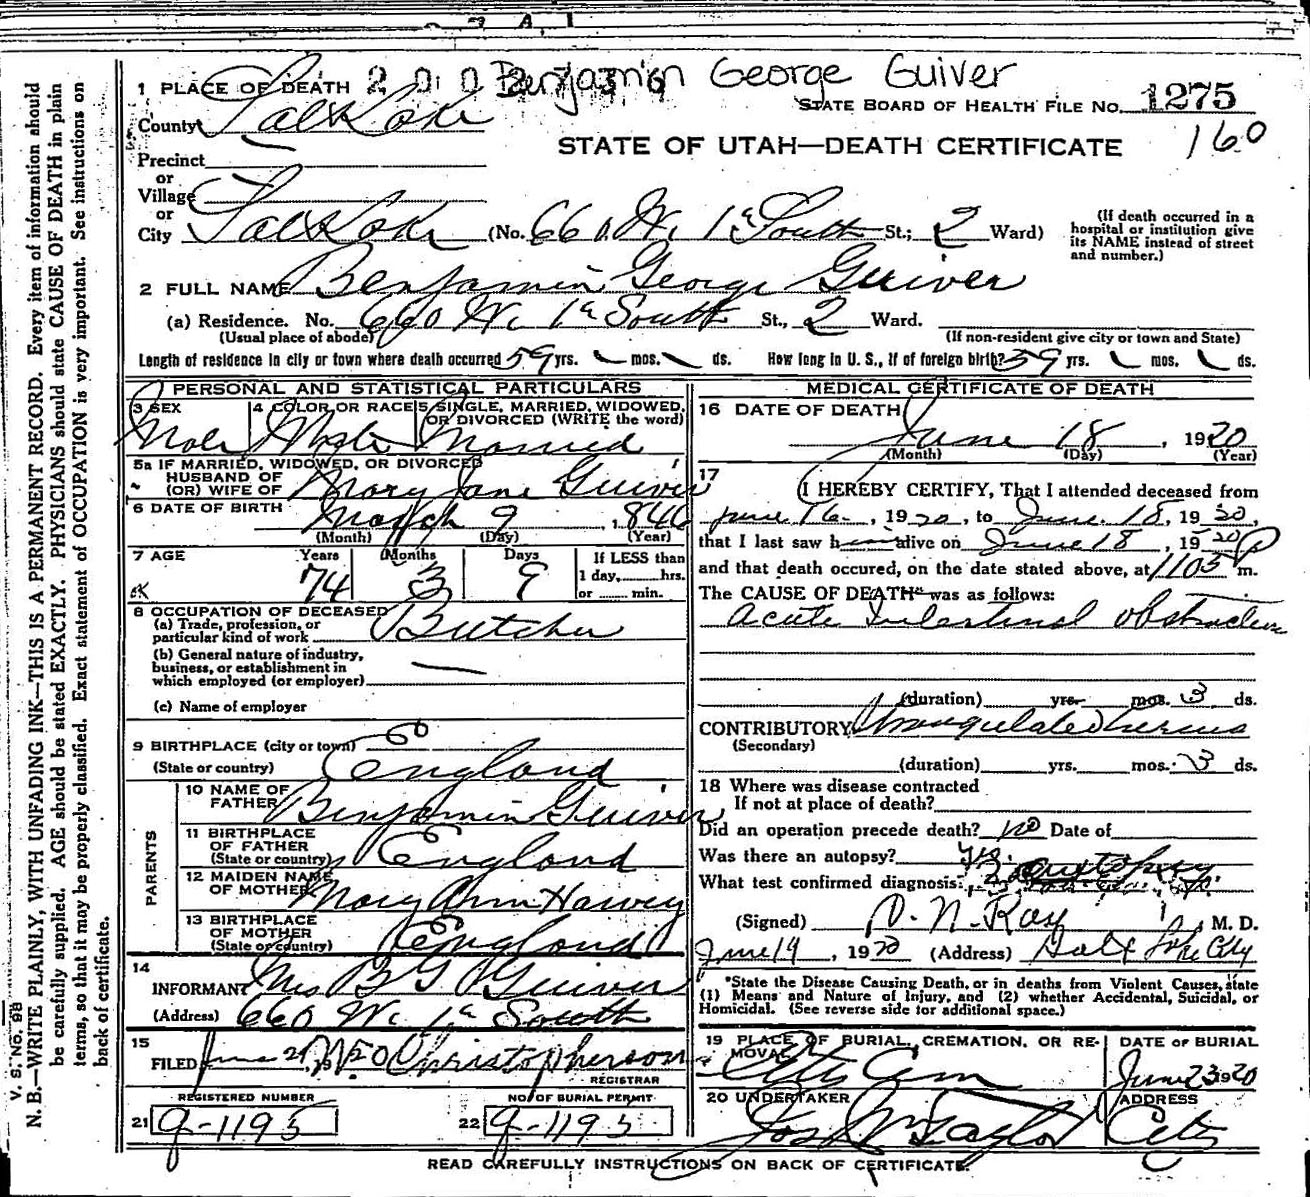 Benjamin George Guiver
1 PLACE OF DEATH
STATE BOARD OF HEALTH FILE NO. 1275
County Salt Lake
160
STATE OF UTAH—DEATH CERTIFICATE
Precinct
or
Village
or
City Salt Lake (No. 660 W. 1st South St.; 2 Ward)
(If death occurred in a hospital or institution give its NAME instead of street and number.)
2 FULL NAME Benjamin George Guiver
(a) Residence. No. 660 W. 1st South St., 2 Ward.
(Usual place of abode) (If non-resident give city or town and State)
Length of residence in city or town where death occurred 59 yrs. mos. ds. How long in U. S., if of foreign birth? 59 yrs. mos. ds.
PERSONAL AND STATISTICAL PARTICULARS
3 SEX 4 COLOR OR RACE 5 SINGLE, MARRIED, WIDOWED, OR DIVORCED (WRITE the word)
Male White Married
5a IF MARRIED, WIDOWED, OR DIVORCED
HUSBAND OF
(OR) WIFE OF Mary Jane Guiver
6 DATE OF BIRTH March 9, 1846
(Month) (Day) (Year)
7 AGE Years Months Days If LESS than
74 3 9 1 day, hrs.
or min.
8 OCCUPATION OF DECEASED
(a) Trade, profession, or
particular kind of work Butcher
(b) General nature of industry,
business, or establishment in
which employed (or employer)
(c) Name of employer
9 BIRTHPLACE (city or town)
(State or country) England
PARENTS
10 NAME OF
FATHER Benjamin Guiver
11 BIRTHPLACE
OF FATHER
(State or country) England
12 MAIDEN NAME
OF MOTHER Mary Ann Harvey
13 BIRTHPLACE
OF MOTHER
(State or country) England
14
INFORMANT Mrs B G Guiver
(Address) 660 W. 1st South
15
FILED June 21, 1920 Christopherson
REGISTRAR
REGISTERED NUMBER NO. OF BURIAL PERMIT
21 g-1195 22 g-1195
MEDICAL CERTIFICATE OF DEATH
16 DATE OF DEATH
June 18, 1920
(Month) (Day) (Year)
17
I HEREBY CERTIFY, That I attended deceased from
June 16, 1920, to June 18, 1920,
that I last saw him alive on June 18, 1920
and that death occured, on the date stated above, at 1105 P m.
The CAUSE OF DEATH* was as follows:
Acute Intestinal obstruction
(duration) yrs. mos. 3 ds.
CONTRIBUTORY Strangulated hernia
(Secondary)
(duration) yrs. mos. 3 ds.
18 Where was disease contracted
If not at place of death?
Did an operation precede death? no Date of
Was there an autopsy? yes
What test confirmed diagnosis: autopsy
(Signed) D. N. Ray M. D.
June 19, 1920 (Address) Salt Lake City
*State the Disease Causing Death, or in deaths from Violent Causes, state
(1) Means and Nature of Injury, and (2) whether Accidental, Suicidal, or
Homicidal. (See reverse side for additional space.)
19 PLACE OF BURIAL, CREMATION, OR RE- DATE OF BURIAL
MOVAL City Cem June 23 1920
20 UNDERTAKER ADDRESS
Jos Wm Taylor City
READ CAREFULLY INSTRUCTIONS ON BACK OF CERTIFICATE.
V. S. NO. 9B
N. B.—WRITE PLAINLY, WITH UNFADING INK—THIS IS A PERMANENT RECORD. Every item of information should
be carefully supplied. AGE should be stated EXACTLY. PHYSICIANS should state CAUSE OF DEATH in plain
terms, so that it may be properly classified. Exact statement of OCCUPATION is very important. See instructions on
back of certificate.